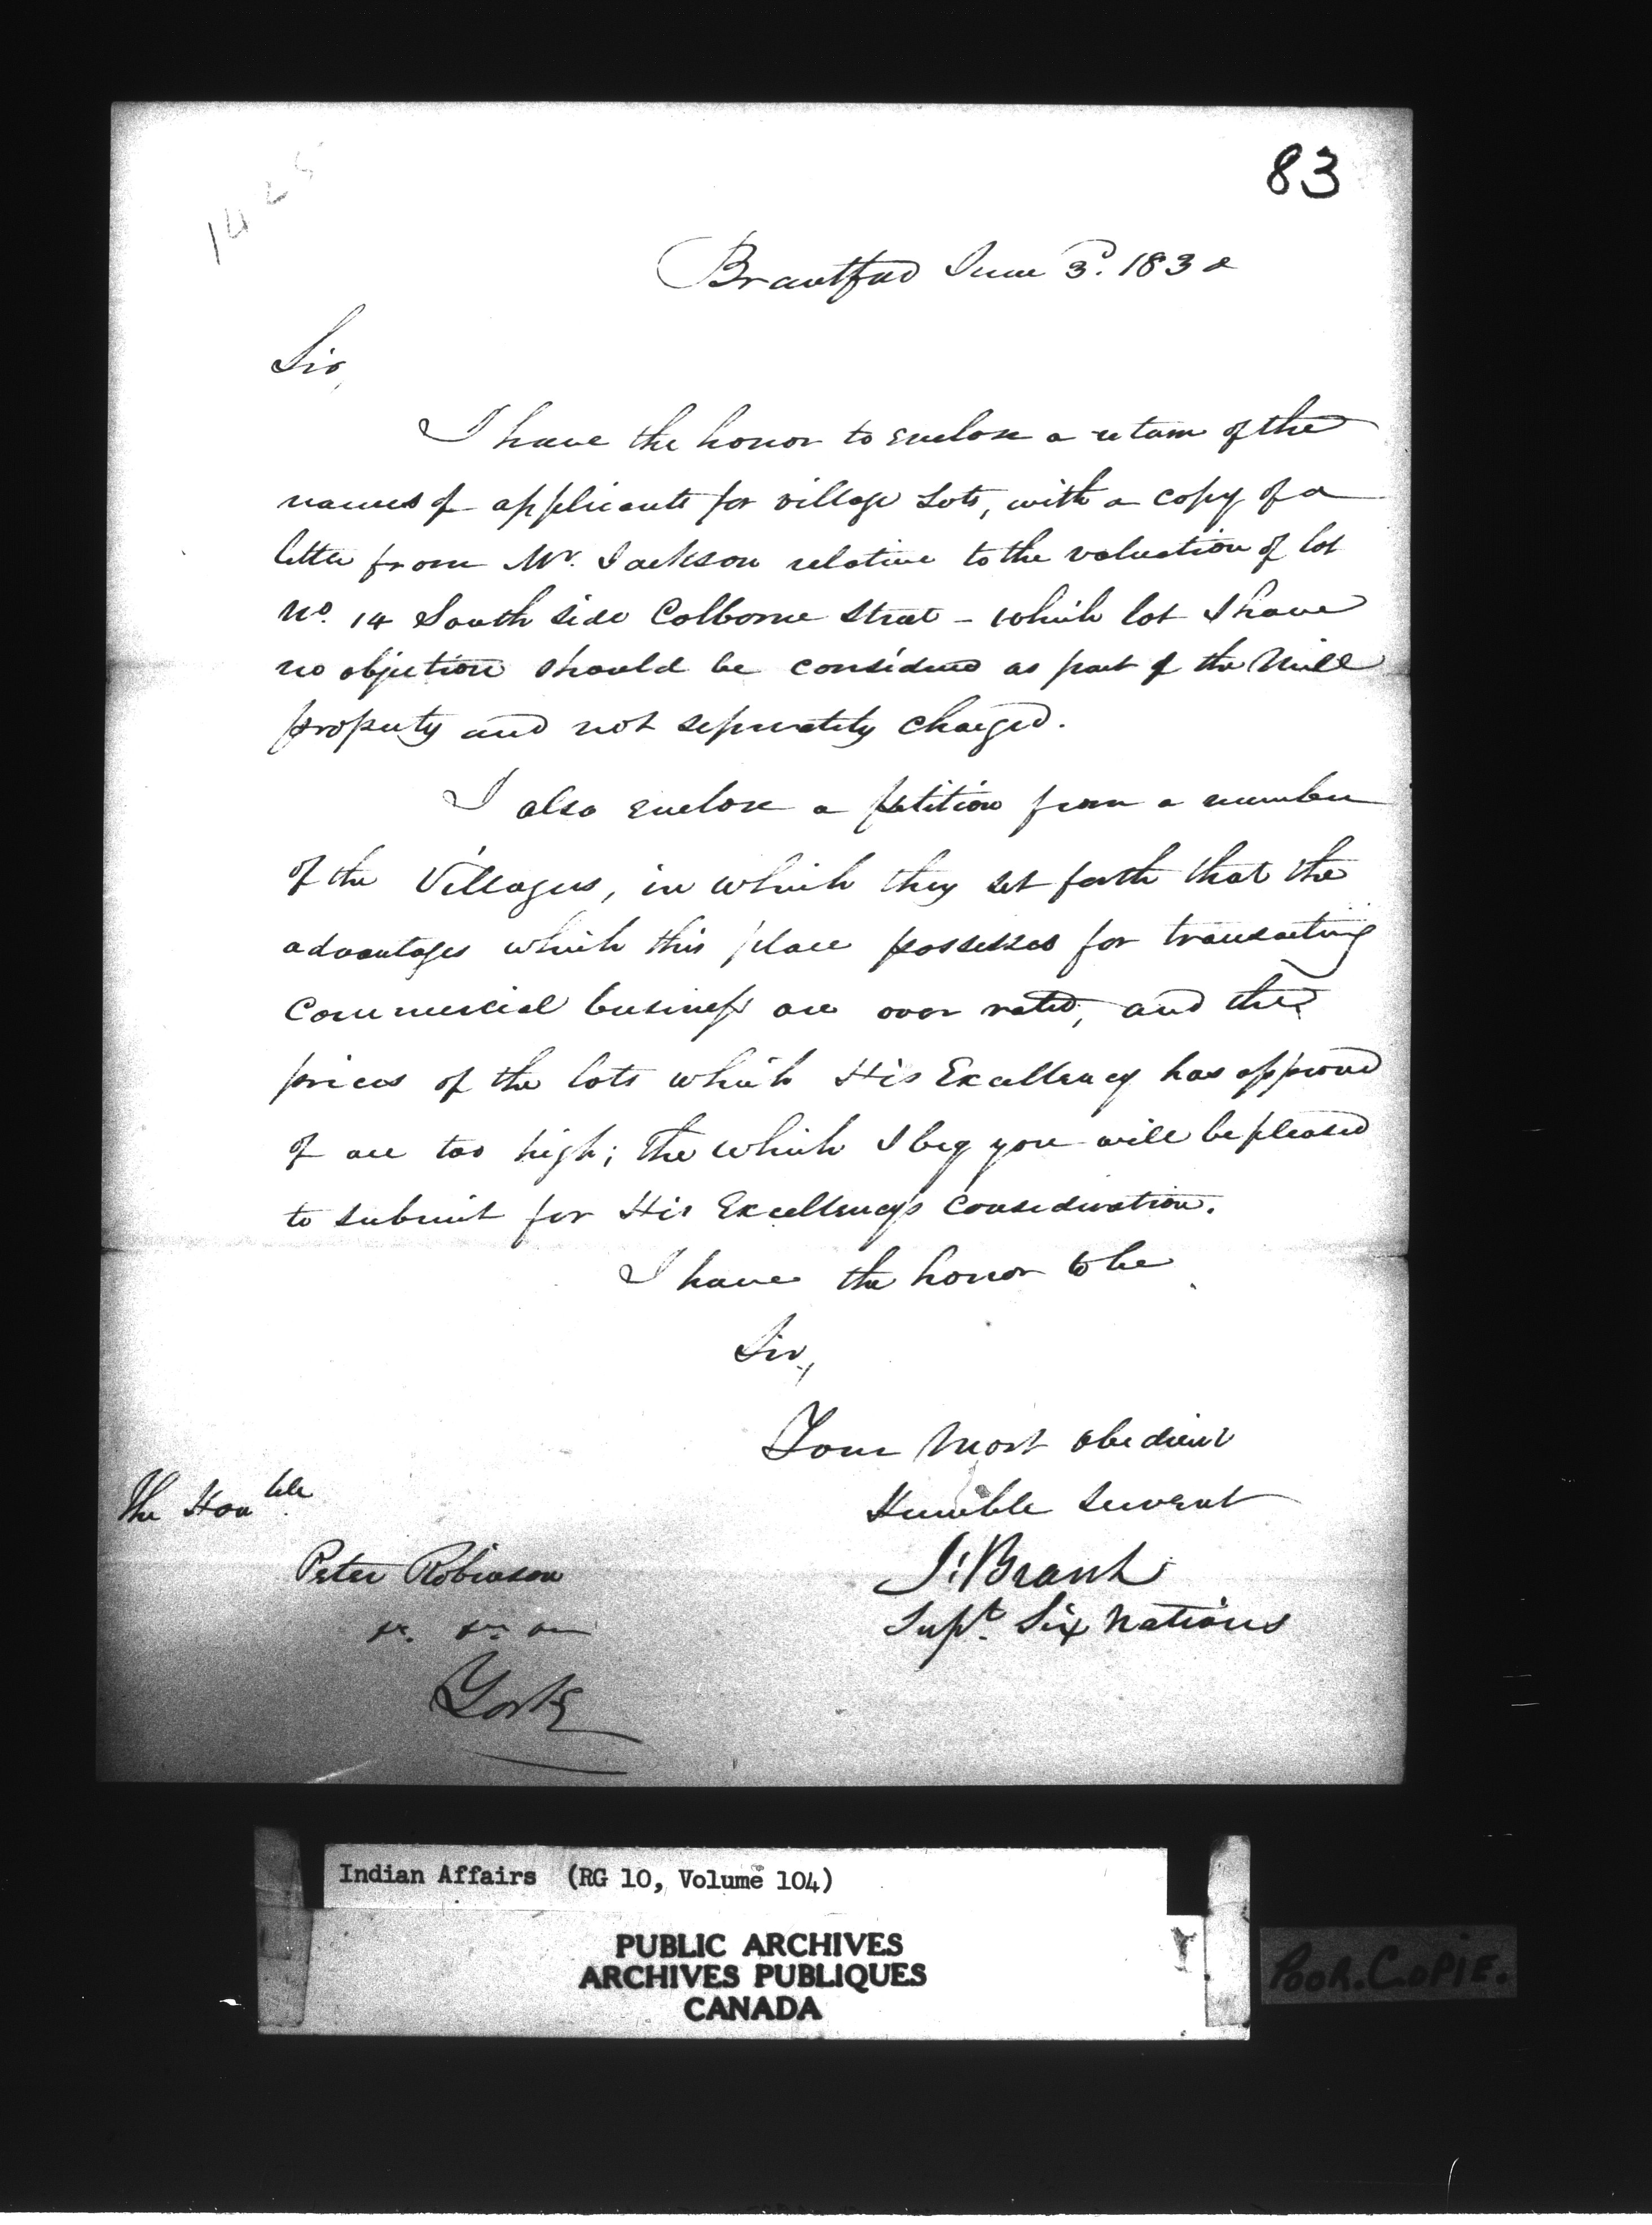 83
Brantford June 3d. 183
Sir,
I have the honor to enclose a return of the
names of applicants for village Lots, with a copy of a
letter from Mr. Jackson relative to the valuation of lot
No. 14 South side Colborne Street - which lot I have
no objection should be considered as part of the Mill
property and not seperately charged.
I also enclose a petition from a number
of the Villagers, in which they set forth that the
advantages which this place possesses for transacting
Commercial business are over rated, and the
prices of the lots which His Excellency has approved
of are too high; the which I beg you will be pleased
to submit for His Excellency's consideration.
I have the honor to be
Sir,
Your most obedient
Humble servant
J: Brant
Supt. Six Nations
The Honble.
Peter Robinson
&c. &c. &c
York
Indian Affairs (RG 10, Volume 104)
PUBLIC ARCHIVES
ARCHIVES PUBLIQUES
CANADA
POOR.COPIE.